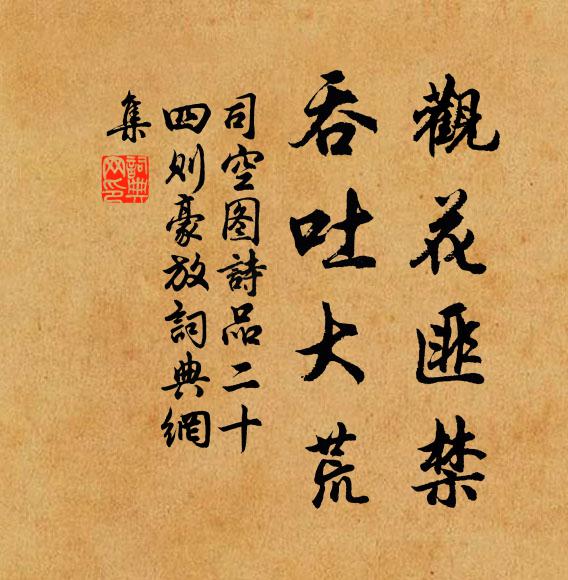 觀花匪禁
吞吐大荒
司空图詩品二十
四则豪放詞典網
集
詞典網印